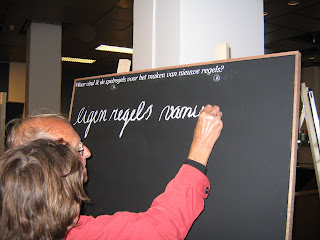 Waar vind ik de spelregels voor het maken van nieuwe regels?
eigen regels vanu